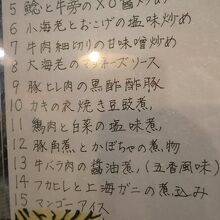 5 鯰と牛蒡のXO醬
6 小海老とおこげの塩味炒め
7 牛肉細切りの甘味噌炒め
8 大海老のマヨネーズソース
9 豚ヒレ肉の黒酢酢豚
10 カキの衣焼き豆豉煮
11 鶏肉と白菜の塩味煮
12 豚角煮とかぼちゃの煮物
13 牛バラ肉の醤油煮(五香風味)
14 フカヒレと上海ガニの煮込み
15 マンゴーアイス